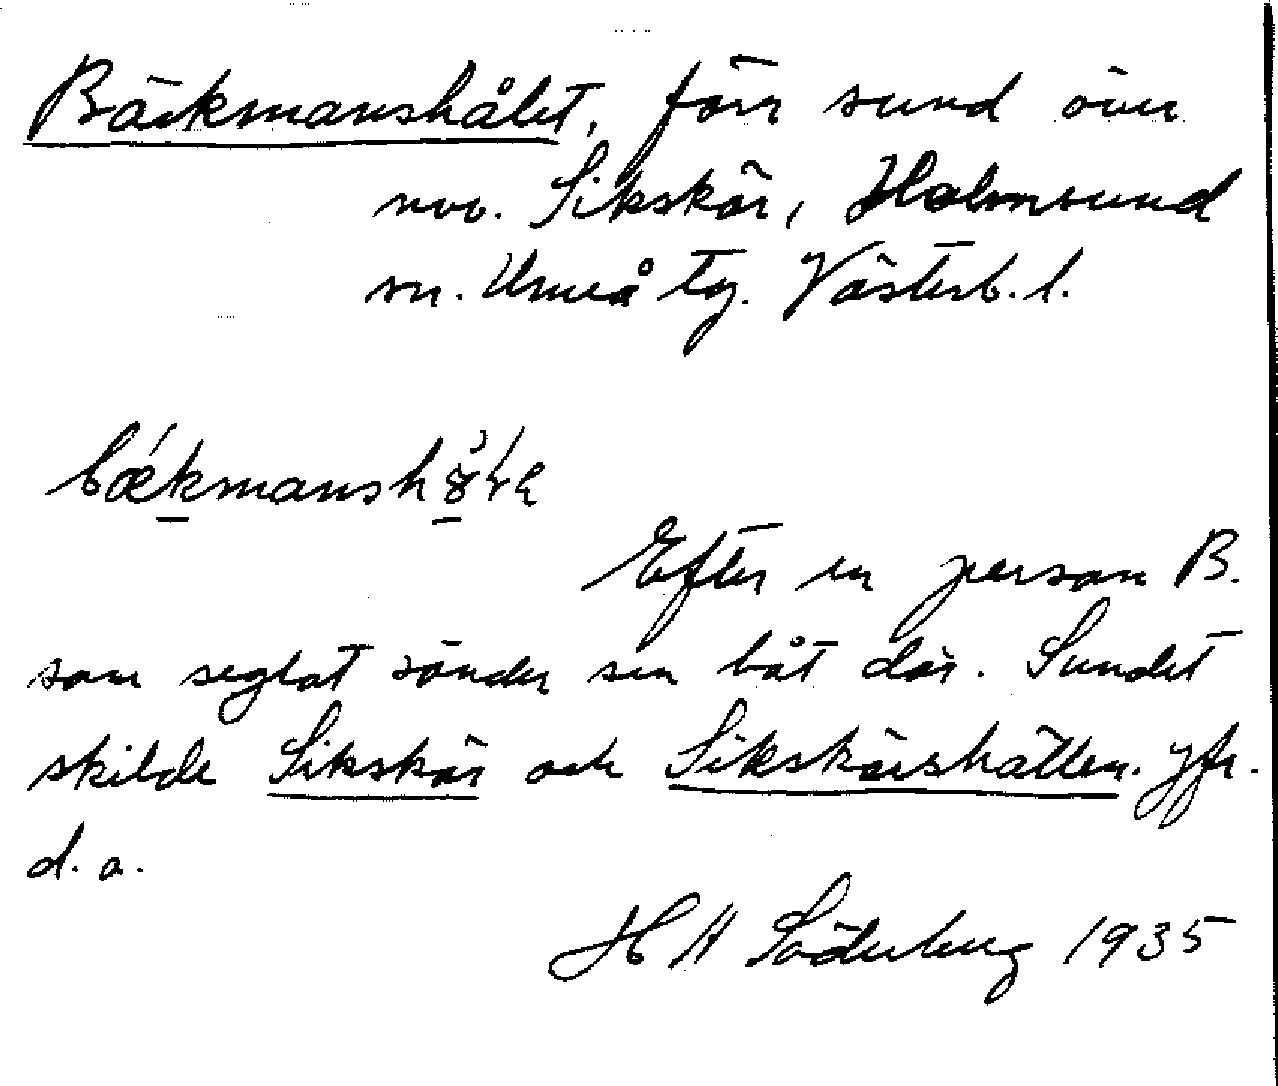 Bäckmanshålet, förr sund över
nvv. Sikskär, Holmsund
sn. Umeå tg. Västerb. l.
Efter en person B.
som seglat sönder sin båt där. Sundet
skilde Sikskär och Sikskärshällen. Jfr.
d. o.
H H Söderberg 1935